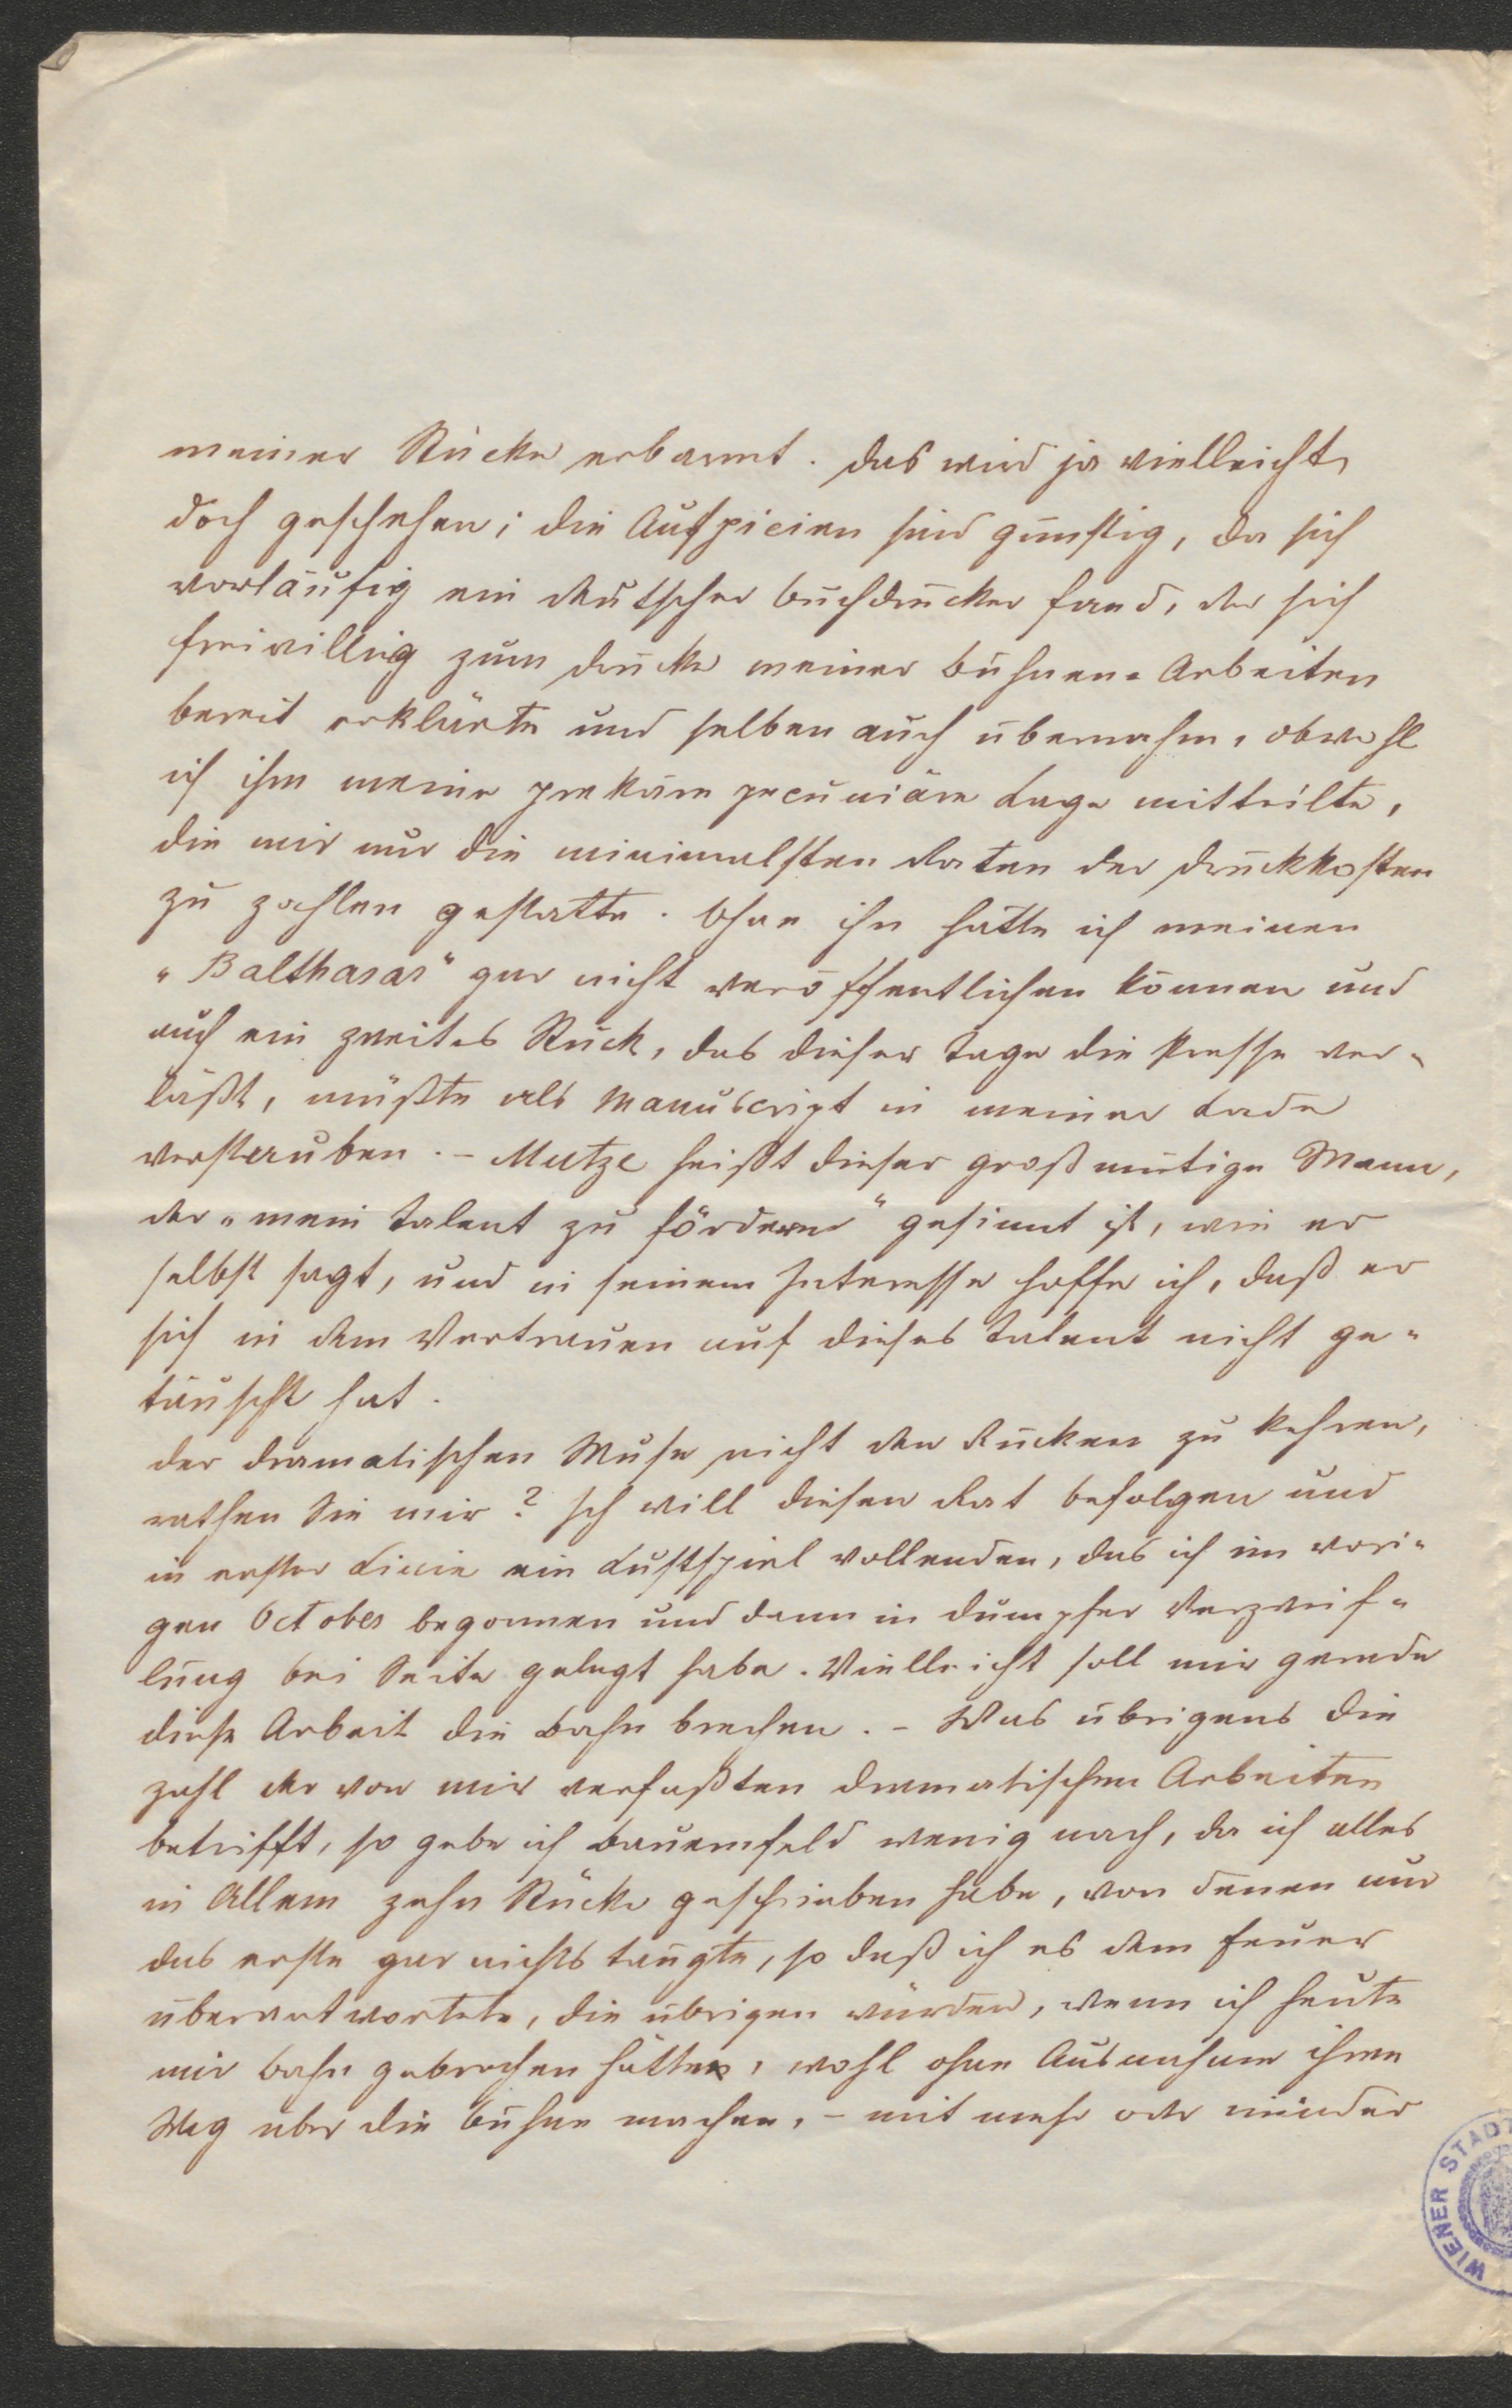 meiner Stücke erbarmt. Das wird ja vielleicht
doch geschehen; die Auspicien sind günstig, da sich
vorläufig ein deutscher Buchdrucker fand, der sich
freiwillig zum Drucke meiner Bühnen-Arbeiten
bereit erklärte und selben auch übernahm, obwohl
ich ihm meine prekäre pecuniäre Lage mitteilte,
die mir nur die minimalsten Raten der Druckkosten
zu zahlen gestatte. Ohne ihn hätte ich meinen
„Balthasar“ gar nicht veröffentlichen können und
auch ein zweites Stück, das dieser Tage die Presse ver-
läßt, müßte als Manuscript in meiner Lade
verstauben. – Mutze heißt dieser großmütige Mann,
der „mein Talent zu fördern“ gesinnt ist, wie er
selbst sagt, und in seinem Interesse hoffe ich, daß er
sich in dem Vertrauen auf dieses Talent nicht ge-
täuscht hat.
Der dramatischen Muse nicht den Rücken zu kehren,
rathen Sie mir? Ich will diesen Rat befolgen und
in erster Linie ein Lustspiel vollenden, das ich im vori-
gen October begonnen und dann in dumpfer Verzweif-
lung bei Seite gelegt habe. Vielleicht soll mir gerade
diese Arbeit die Bahn brechen. – Was übrigens die
Zahl der von mir verfaßten dramatischen Arbeiten
betrifft, so gebe ich Bauernfeld wenig nach, da ich alles
in Allem zehn Stücke geschrieben habe, von denen nur
das erste gar nichts taugte, so daß ich es dem Feuer
überantwortete, die übrigen würden, wenn ich heute
mir Bahn gebrochen hätte, wohl ohne Ausnahme ihren
Weg über die Bühne machen, – mit mehr oder minder
WIENER STADT